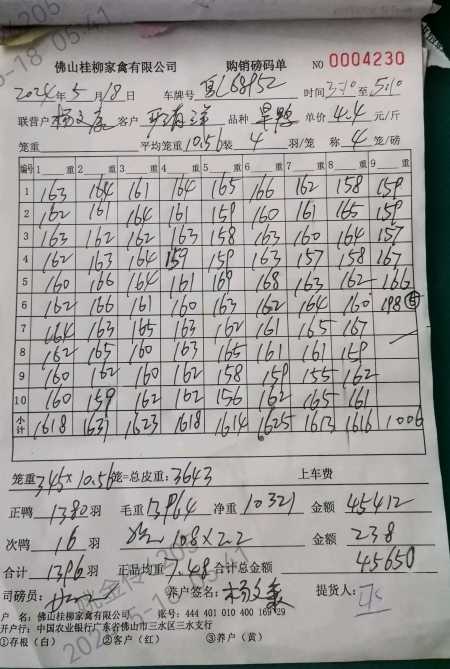 佛山桂柳家禽有限公司 购销磅码单 NO 0004230
2024年5月18日 车牌号 时间3:10至5:10
联营户 杨文 客户 品种 旱鸭 单价4.4元/斤
笼重 平均笼重10.56装4羽/笼 称4笼/磅
编号 1 重 2 重 3 重 4 重 5 重 6 重 7 重 8 重 9 重
1 163 164 161 164 165 166 162 158 159
2 162 161 164 161 159 160 161 165 159
3 163 162 162 163 158 163 160 164 157
4 162 163 164 159 159 163 157 158 167
5 160 166 164 161 169 168 163 162 166
6 162 166 161 160 163 162 164 160 198
7 164 163 165 163 162 161 165 167
8 162 165 160 163 165 161 161 159
9 160 162 160 162 158 159 155 162
10 160 159 162 162 156 162 165 161
小计 1618 1631 1623 1618 1614 1625 1613 1616 1006
笼重345×10.56笼=总皮重:3643 上车费
正鸭1380羽 毛重13964 净重10321 金额45412
次鸭16羽 108×2.2 金额238
合计1396羽 正品均重7.48 合计总金额45650
司磅员: 养户签名:杨文 提货人:
户 名:佛山桂柳家禽有限公司 账号:444 401 010 400 16929
开户行:中国农业银行广东省佛山市三水区三水支行
①存根(白) ②客户(红) ③养户(黄)